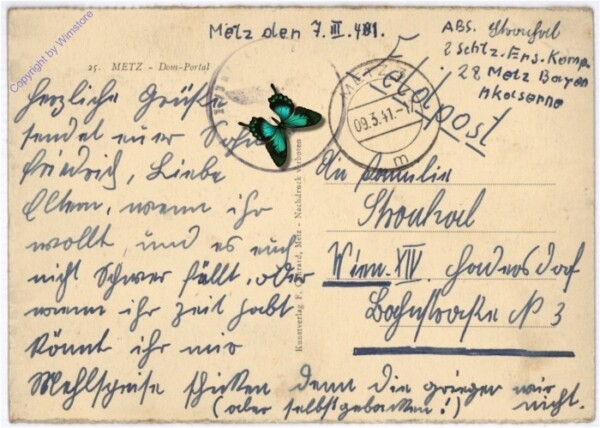 Copyright by Wimstore
Metz den 7. III. 41.
25. METZ - Dom-Portal
ABS. Strouhal
2 Schtz. Ers. Komp.
28 Metz Bayern
Kaserne
Feldpost
METZ
09.3.41.-17
m
Herzliche Grüße
sendet euer Sohn
Friedrich, Liebe
Eltern, wenn ihr
wollt, und es euch
nicht Schwer fällt, oder
wenn ihr zeit habt
könnt ihr mir
Mehlspeise schicken denn die grieger wir
(aber selbstgebacken!) nicht.
Kunstverlag F. Conrard, Metz - Nachdruck verboten
An Familie
Strouhal
Wien XIV. Hadersdorf
Bahnstraße N 3